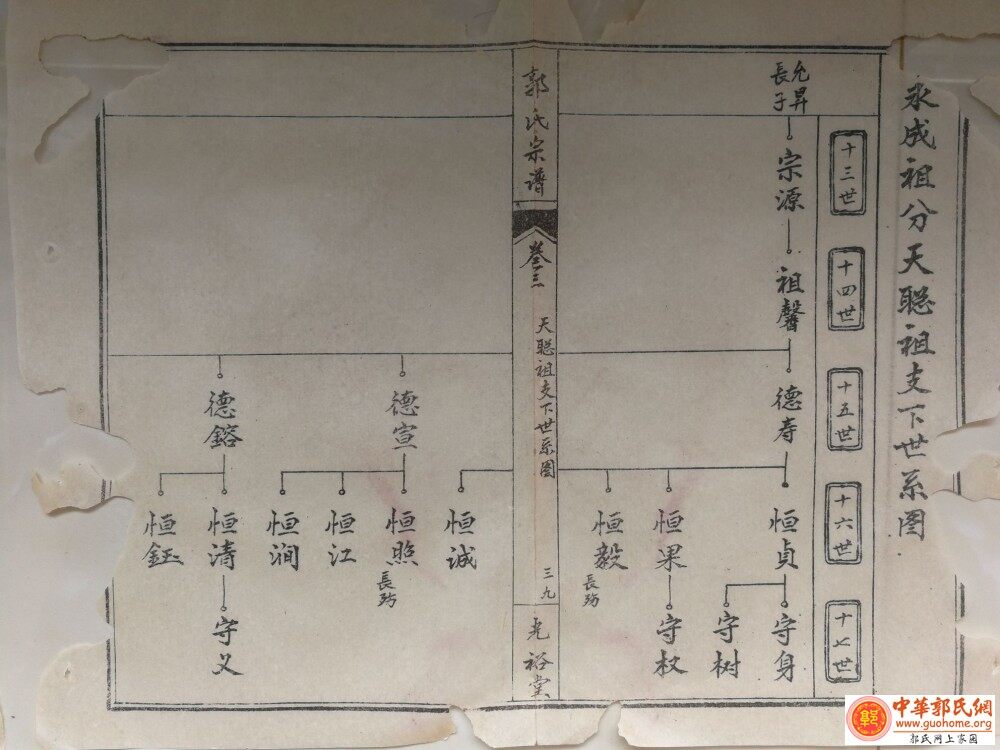 永成祖分天聪祖支下世系图
十三世
十四世
十五世
十六世
十七世
允昇
長子
宗源
祖馨
德寿
恒贞
恒果
恒毅
長殇
守身
守树
守权
郭氏宗谱
卷三
天聪祖支下世系图
三九
光裕堂
恒诚
德宣
恒照
長殇
恒江
恒润
德鎔
恒涛
恒鈺
守义
中華郭氏網
www.guohome.org
郭氏网上家园